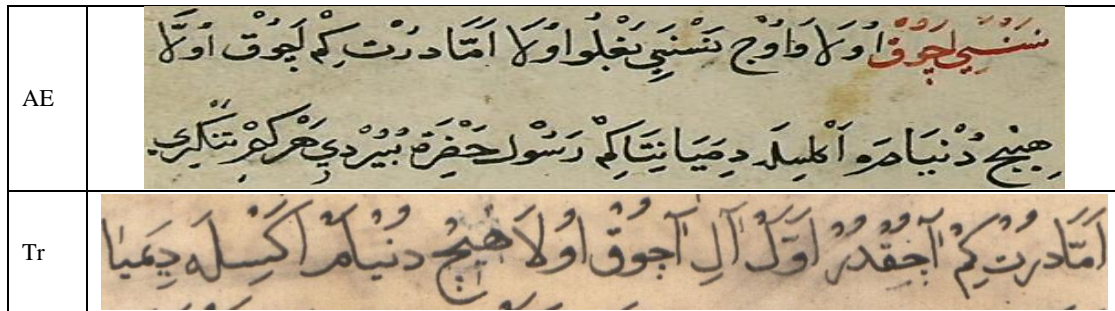 AE
اُولَا وَاوُچ نَسْنَسِي بَغْلُو اُولَا اَمَّا دُرْت كِمْ اَچُوقْ اُولَا
هِيچ دُنْيَامْ دِمَيَا نِتَاكِمْ رَسُولْ حَضْرَة بُيُرْدِي هَرْ كِمْ تَنكْرِي
Tr
اَمَّا دُرْت كِمْ آجُقْدُرْ اَوَّلْ اَلِ آجُوقْ اُولَا هِيچْ دُنْيَامْ اَكْسِلَه دِيَميَا